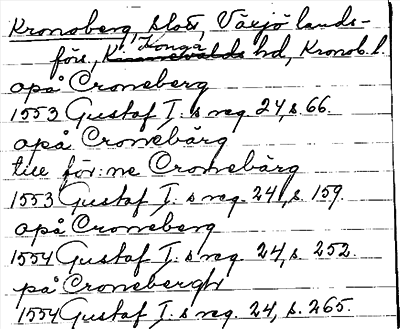 Kronoberg, slott, Växjö lands-
förs., Konga hd, Kronob. l.
opå Croneberg
1553 Gustaf I:s reg. 24, s. 66.
opå Cronebärg
till för:ne Cronebärg
1553 Gustaf I:s reg. 24, s. 159.
opå Croneberg
1554 Gustaf I:s reg. 24, s. 252.
på Cronebergh
1554 Gustaf I:s reg. 24, s. 265.